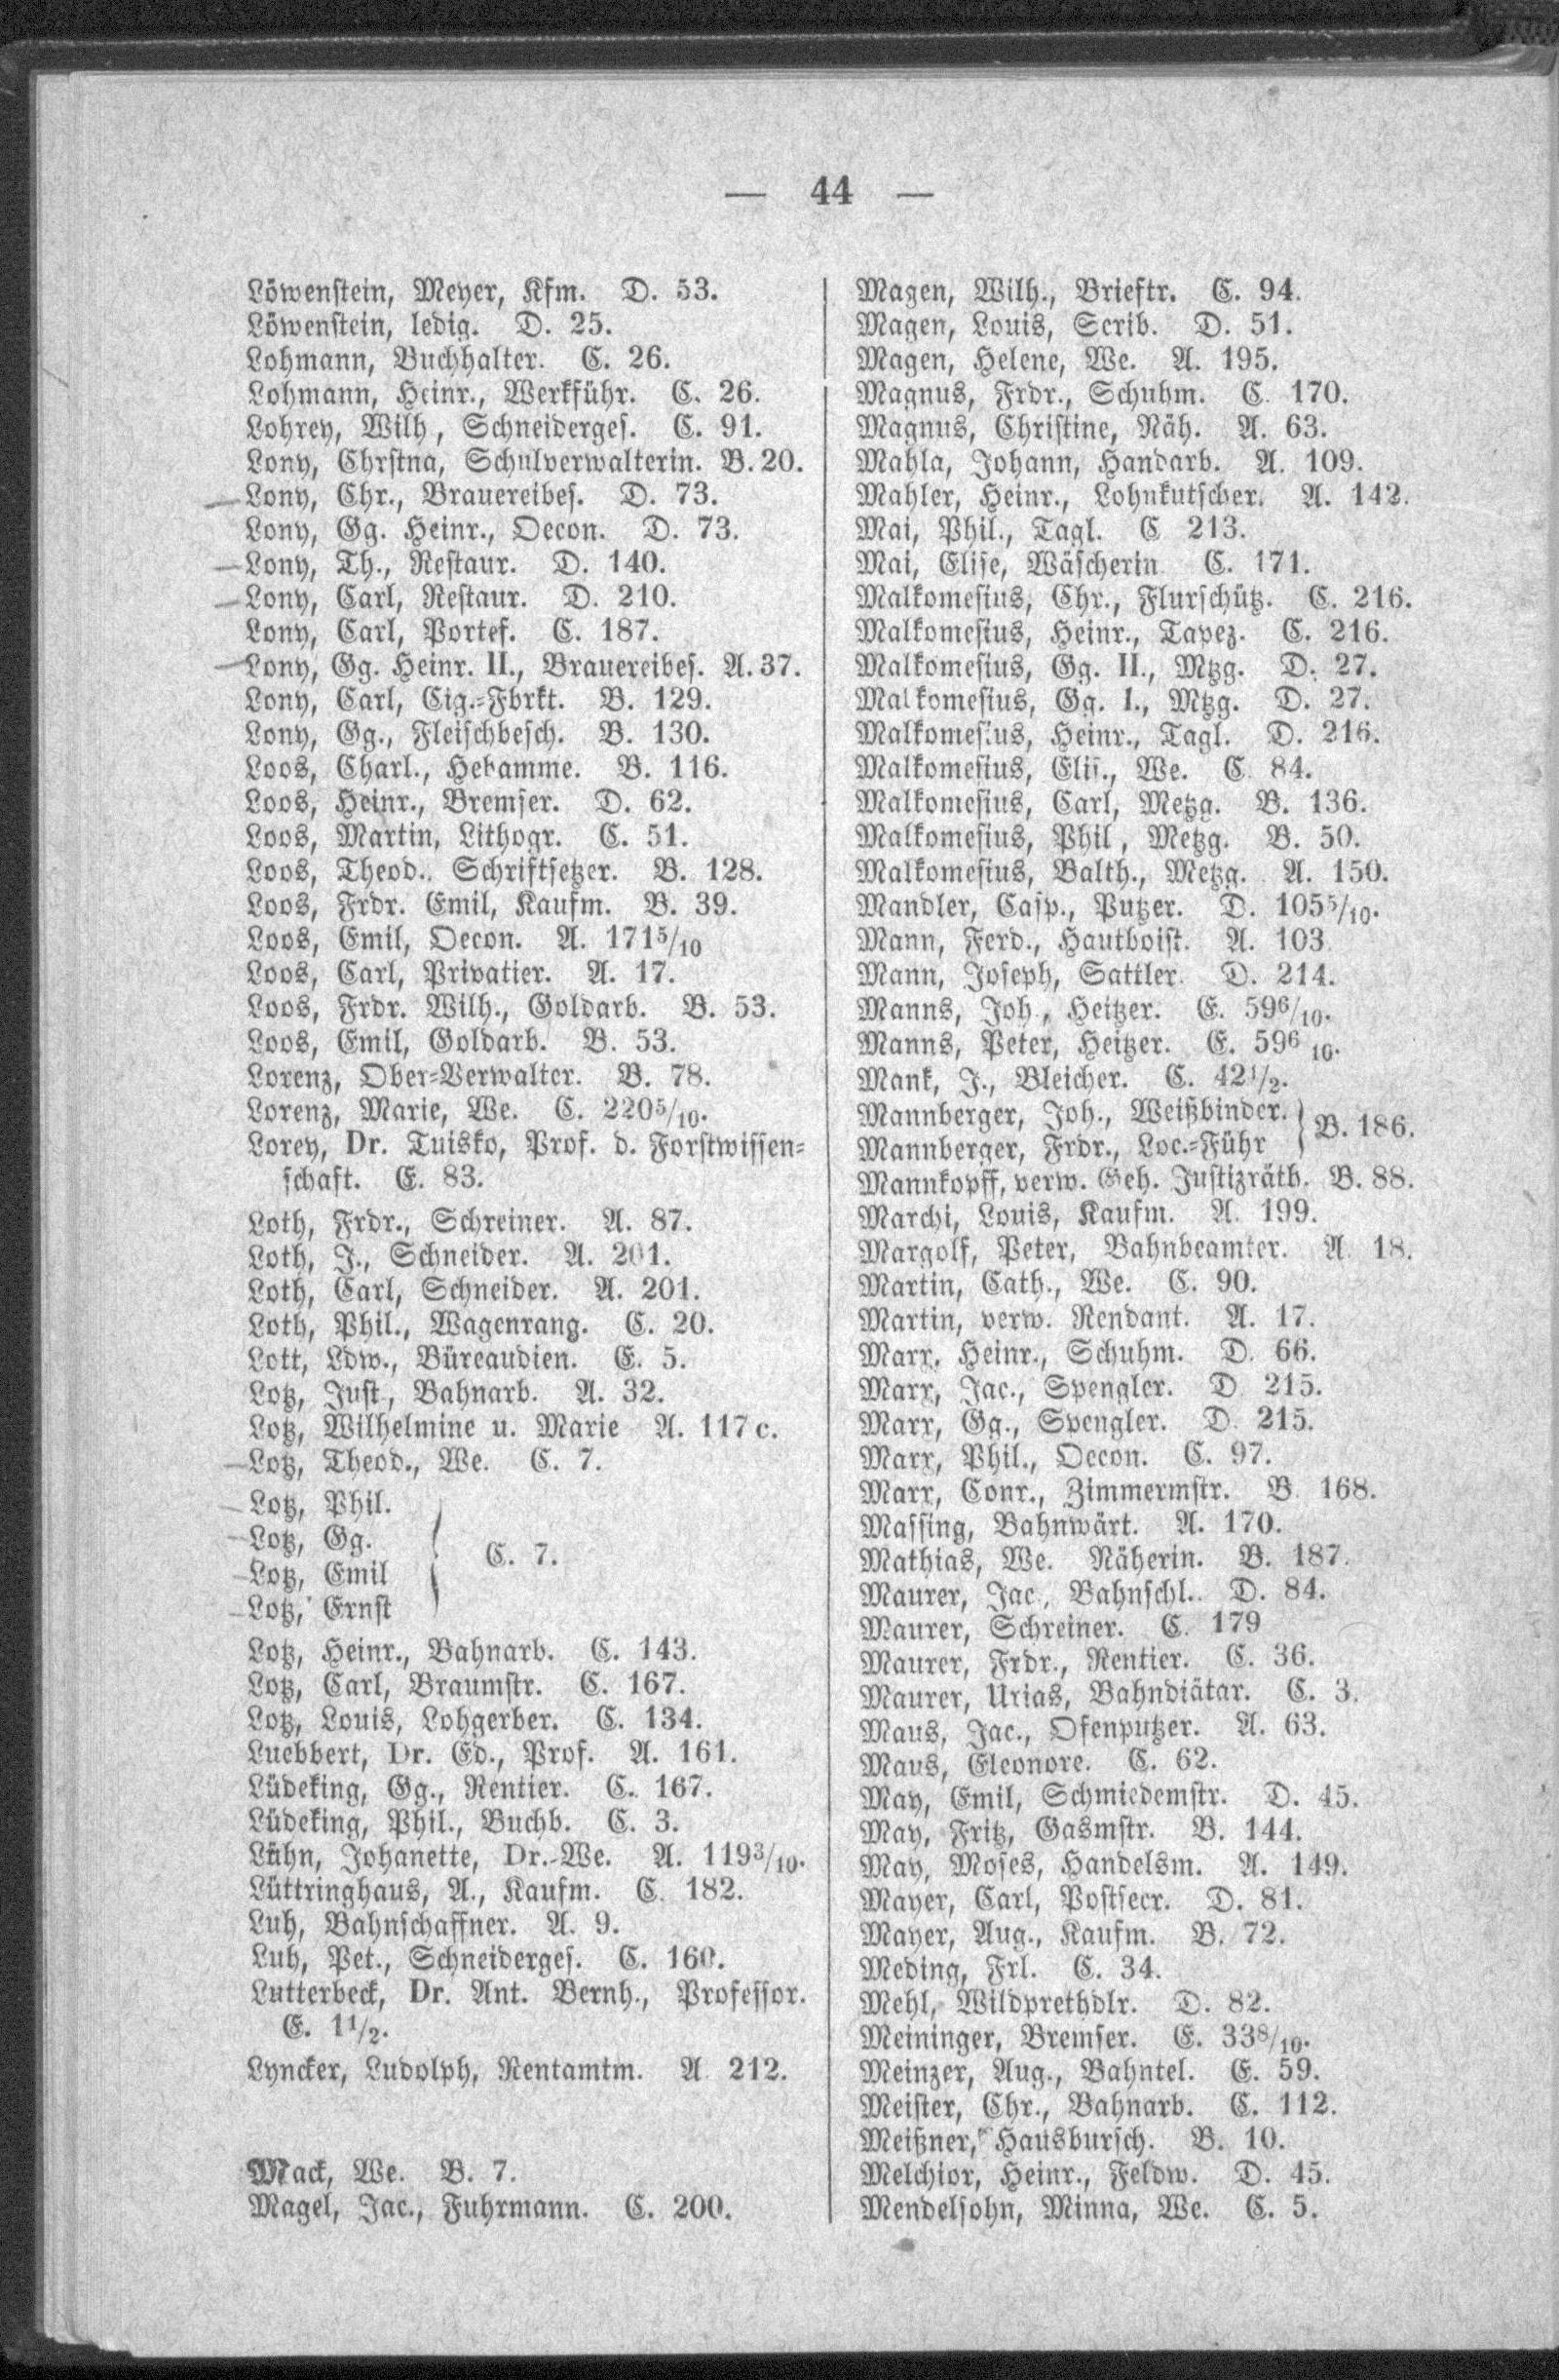 — 44 —
Löwenstein, Meyer, Kfm. D. 53.
Löwenstein, ledig. D. 25.
Lohmann, Buchhalter. C. 26.
Lohmann, Heinr., Werkführ. C. 26.
Lohrey, Wilh, Schneiderges. C. 91.
Lony, Chrstna, Schulverwalterin. B. 20.
Lony, Chr., Brauereibes. D. 73.
Lony, Gg. Heinr., Oecon. D. 73.
Lony, Th., Restaur. D. 140.
Lony, Carl, Restaur. D. 210.
Lony, Carl, Portef. C. 187.
Lony, Gg. Heinr. II., Brauereibes. A. 37.
Lony, Carl, Cig.-Fbrkt. B. 129.
Lony, Gg., Fleischbesch. B. 130.
Loos, Charl., Hebamme. B. 116.
Loos, Heinr., Bremser. D. 62.
Loos, Martin, Lithogr. C. 51.
Loos, Theod., Schriftsetzer. B. 128.
Loos, Frdr. Emil, Kaufm. B. 39.
Loos, Emil, Oecon. A. 171⁵/₁₀
Loos, Carl, Privatier. A. 17.
Loos, Frdr. Wilh., Goldarb. B. 53.
Loos, Emil, Goldarb. B. 53.
Lorenz, Ober-Verwalter. B. 78.
Lorenz, Marie, We. C. 220⁵/₁₀.
Lorey, Dr. Tuisko, Prof. d. Forstwissen-
schaft. E. 83.
Loth, Frdr., Schreiner. A. 87.
Loth, J., Schneider. A. 201.
Loth, Carl, Schneider. A. 201.
Loth, Phil., Wagenrang. C. 20.
Lott, Ldw., Büreaudien. E. 5.
Lotz, Just, Bahnarb. A. 32.
Lotz, Wilhelmine u. Marie A. 117 c.
Lotz, Theod., We. C. 7.
Lotz, Phil.
Lotz, Gg.
C. 7.
Lotz, Emil
Lotz, Ernst
Lotz, Heinr., Bahnarb. C. 143.
Lotz, Carl, Braumstr. C. 167.
Lotz, Louis, Lohgerber. C. 134.
Luebbert, Dr. Ed., Prof. A. 161.
Lüdeking, Gg., Rentier. C. 167.
Lüdeking, Phil., Buchb. C. 3.
Lühn, Johanette, Dr.-We. A. 119³/₁₀.
Lüttringhaus, A., Kaufm. C. 182.
Luh, Bahnschaffner. A. 9.
Luh, Pet., Schneiderges. C. 160.
Lutterbeck, Dr. Ant. Bernh., Professor.
E. 1¹/₂.
Lyncker, Ludolph, Rentamtm. A 212.
Mack, We. B. 7.
Magel, Jac., Fuhrmann. C. 200.
Magen, Wilh., Brieftr. C. 94.
Magen, Louis, Scrib. D. 51.
Magen, Helene, We. A. 195.
Magnus, Frdr., Schuhm. C. 170.
Magnus, Christine, Näh. A. 63.
Mahla, Johann, Handarb. A. 109.
Mahler, Heinr., Lohnkutscher. A. 142.
Mai, Phil., Tagl. C 213.
Mai, Elise, Wäscherin C. 171.
Malkomesius, Chr., Flurschütz. C. 216.
Malkomesius, Heinr., Tapez. C. 216.
Malkomesius, Gg. II., Mtzg. D. 27.
Malkomesius, Gg. I., Mtzg. D. 27.
Malkomesius, Heinr., Tagl. D. 216.
Malkomesius, Elis., We. C. 84.
Malkomesius, Carl, Metzg. B. 136.
Malkomesius, Phil, Metzg. B. 50.
Malkomesius, Balth., Metzg. A. 150.
Mandler, Casp., Putzer. D. 105⁵/₁₀.
Mann, Ferd., Hautboist. A. 103
Mann, Joseph, Sattler. D. 214.
Manns, Joh., Heitzer. E. 59⁶/₁₀.
Manns, Peter, Heitzer. E. 59⁶ ₁₀.
Mank, J., Bleicher. C. 42¹/₂.
Mannberger, Joh., Weißbinder.
B. 186.
Mannberger, Frdr., Loc.-Führ
Mannkopff, verw. Geh. Justizräth. B. 88.
Marchi, Louis, Kaufm. A. 199.
Margolf, Peter, Bahnbeamter. A 18.
Martin, Cath., We. C. 90.
Martin, verw. Rendant. A. 17.
Marx, Heinr., Schuhm. D. 66.
Marx, Jac., Spengler. D 215.
Marx, Gg., Spengler. D. 215.
Marx, Phil., Oecon. C. 97.
Marx, Conr., Zimmermstr. B 168.
Massing, Bahnwärt. A. 170.
Mathias, We. Näherin. B. 187.
Maurer, Jac., Bahnschl.. D. 84.
Maurer, Schreiner. C. 179
Maurer, Frdr., Rentier. C. 36.
Maurer, Urias, Bahndiätar. C. 3.
Maus, Jac., Ofenputzer. A. 63.
Maus, Eleonore. C. 62.
May, Emil, Schmiedemstr. D. 45.
May, Fritz, Gasmstr. B. 144.
May, Moses, Handelsm. A. 149.
Mayer, Carl, Postsecr. D. 81.
Mayer, Aug., Kaufm. B. 72.
Meding, Frl. C. 34.
Mehl, Wildprethdlr. D. 82.
Meininger, Bremser. E. 33⁸/₁₀.
Meinzer, Aug., Bahntel. E. 59.
Meister, Chr., Bahnarb. C. 112.
Meißner, Hausbursch. B. 10.
Melchior, Heinr., Feldw. D. 45.
Mendelsohn, Minna, We. C. 5.